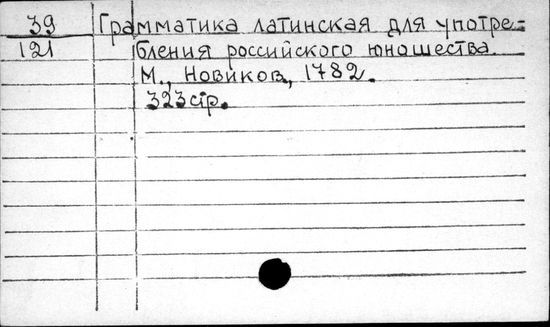 39 Грамматика латинская для употре-
121 бления российского юношества.
М., Новиков, 1782.
323 стр.